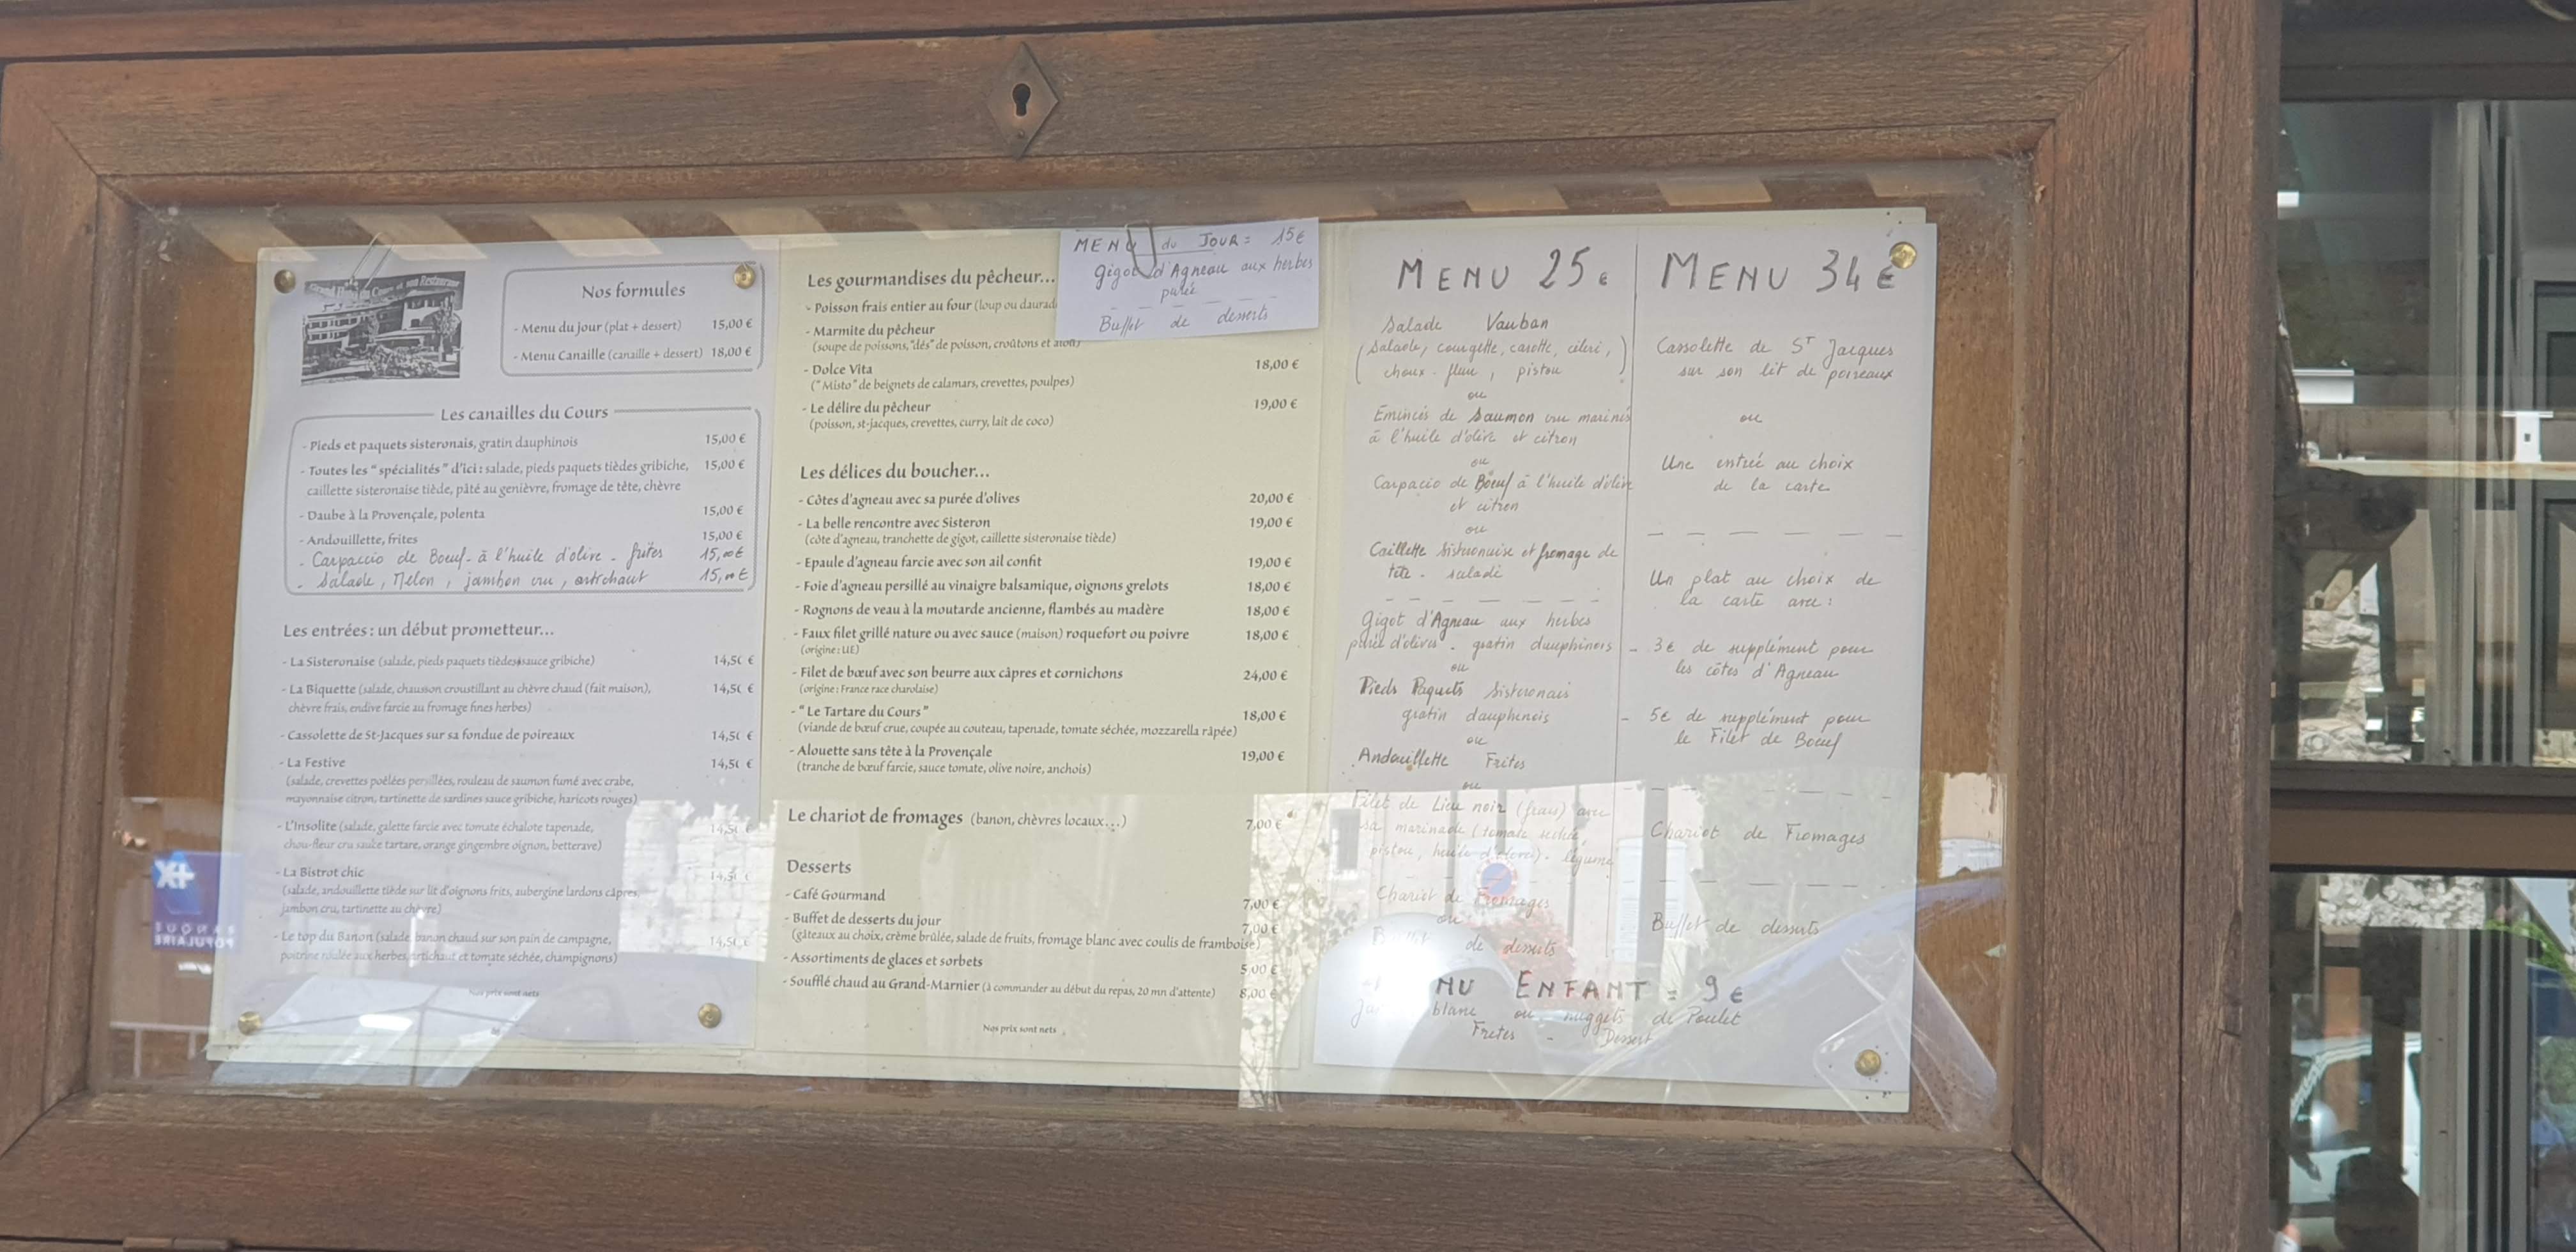 Grand Hôtel du Cours et son Restaurant
Nos formules
- Menu du jour (plat + dessert) 15,00 €
- Menu Canaille (canaille + dessert) 18,00 €
Les canailles du Cours
- Pieds et paquets sisteronais, gratin dauphinois 15,00 €
- Toutes les "spécialités" d'ici : salade, pieds paquets tièdes gribiche, 15,00 €
caillette sisteronaise tiède, pâté au genièvre, fromage de tête, chèvre
- Daube à la Provençale, polenta 15,00 €
- Andouillette, frites 15,00 €
- Carpaccio de Boeuf - à l'huile d'olive - frites 15,00€
- Salade, Melon, jambon cru, artichaut 15,00€
Les entrées : un début prometteur...
- La Sisteronaise (salade, pieds paquets tièdes sauce gribiche) 14,50 €
- La Biquette (salade, chausson croustillant au chèvre chaud (fait maison), 14,50 €
chèvre frais, endive farcie au fromage fines herbes)
- Cassolette de St-Jacques sur sa fondue de poireaux 14,50 €
- La Festive 14,50 €
(salade, crevettes poêlées persillées, rouleau de saumon fumé avec crabe,
mayonnaise citron, tartinette de sardines sauce gribiche, haricots rouges)
- L'Insolite (salade, galette farcie avec tomate échalote tapenade, 14,50 €
chou-fleur cru sauce tartare, orange gingembre oignon, betterave)
- La Bistrot chic 14,50 €
(salade, andouillette tiède sur lit d'oignons frits, aubergine lardons câpres,
jambon cru, tartinette au chèvre)
- Le top du Banon (salade, banon chaud sur son pain de campagne, 14,50 €
poitrine roulée aux herbes, artichaut et tomate séchée, champignons)
Nos prix sont nets
Les gourmandises du pêcheur...
- Poisson frais entier au four (loup ou daurad
- Marmite du pêcheur
(soupe de poissons, "dés" de poisson, croûtons et aïoli)
- Dolce Vita 18,00 €
("Misto" de beignets de calamars, crevettes, poulpes)
- Le délire du pêcheur 19,00 €
(poisson, st-jacques, crevettes, curry, lait de coco)
Les délices du boucher...
- Côtes d'agneau avec sa purée d'olives 20,00 €
- La belle rencontre avec Sisteron 19,00 €
(côte d'agneau, tranchette de gigot, caillette sisteronaise tiède)
- Epaule d'agneau farcie avec son ail confit 19,00 €
- Foie d'agneau persillé au vinaigre balsamique, oignons grelots 18,00 €
- Rognons de veau à la moutarde ancienne, flambés au madère 18,00 €
- Faux filet grillé nature ou avec sauce (maison) roquefort ou poivre 18,00 €
(origine : UE)
- Filet de bœuf avec son beurre aux câpres et cornichons 24,00 €
(origine : France race charolaise)
- "Le Tartare du Cours" 18,00 €
(viande de bœuf crue, coupée au couteau, tapenade, tomate séchée, mozzarella râpée)
- Alouette sans tête à la Provençale 19,00 €
(tranche de bœuf farcie, sauce tomate, olive noire, anchois)
Le chariot de fromages (banon, chèvres locaux...) 7,00 €
Desserts
- Café Gourmand 7,00 €
- Buffet de desserts du jour 7,00 €
(gâteaux au choix, crème brûlée, salade de fruits, fromage blanc avec coulis de framboise)
- Assortiments de glaces et sorbets 5,00 €
- Soufflé chaud au Grand-Marnier (à commander au début du repas, 20 mn d'attente) 8,00 €
Nos prix sont nets
MENU du JOUR = 15€
Gigot d'Agneau aux herbes
purée
Buffet de desserts
MENU 25€
Salade Vauban
(Salade, courgette, carotte, céleri,
choux-fleur, pistou)
ou
Émincés de Saumon cru marinés
à l'huile d'olive et citron
ou
Carpacio de Boeuf à l'huile d'olive
et citron
ou
Caillette Sisteronaise et fromage de
tête - salade
Gigot d'Agneau aux herbes
purée d'olives - gratin dauphinois
ou
Pieds Paquets Sisteronais
gratin dauphinois
ou
Andouillette Frites
ou
Filet de Lieu noir (frais) avec
sa marinade (tomate séchée,
pistou, huile d'olive) - légume
Chariot de Fromages
ou
de desserts
MENU 34€
Cassolette de ST Jacques
sur son lit de poireaux
ou
Une entrée au choix
de la carte
Un plat au choix de
la carte avec :
- 3€ de supplément pour
les côtes d'Agneau
- 5€ de supplément pour
le Filet de Boeuf
Chariot de Fromages
Buffet de desserts
NU ENFANT = 9€
blanc ou nuggets de Poulet
Frites - Dessert
BANQUE
POPULAIRE